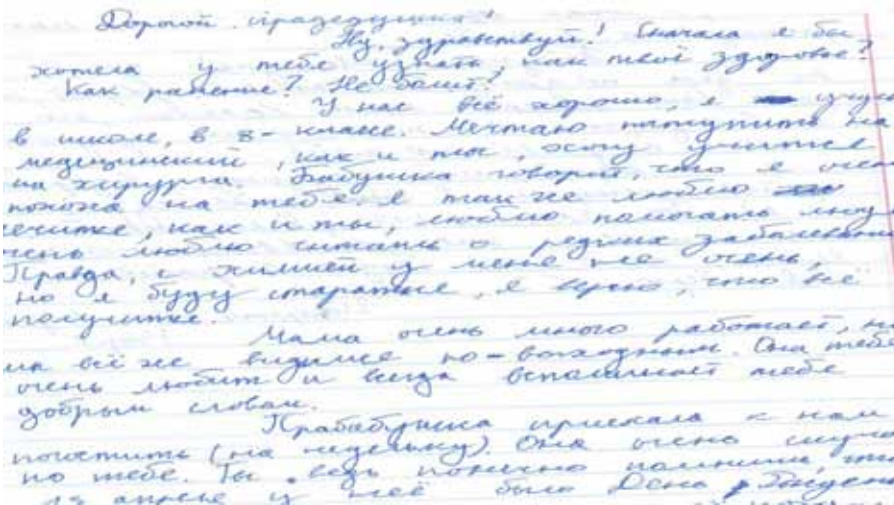 Дорогой прадедушка!
Ну, здравствуй! Сначала я бы
хотела у тебя узнать, как твоё здоровье?
Как ранение? Не болит?
У нас всё хорошо, я учусь
в школе, в 8-классе. Мечтаю поступить на
медицинский, как и ты, хочу учится
на хирурга. Бабушка говорит, что я очень
похожа на тебя. Я так же люблю
лечитье, как и ты, люблю помогать люд
очень люблю читать о редких заболевани
Правда, с химией у меня не очень,
но я буду старатье, я верю, что всё
получитье.
Мама очень много работает, н
мы всё же видимся по-выходным. Она тебя
очень любит и всегда вспоминает тебя
добрым словам.
Прабабушка приехала к нам
погостить (на недельку). Она очень скуча
по тебе. Ты ведь конечно помнишь, что
апреля у неё был День Рожден